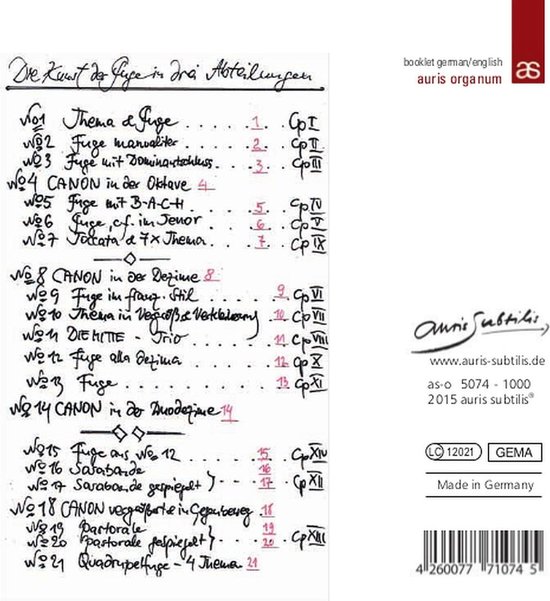 Die Kunst der Fuge in drei Abteilungen
No1 Thema & Fuge . . . . . . 1 . . Cp I
No2 Fuge manualiter . . . . . 2 . . Cp II
No3 Fuge mit Dominantschluss . . 3 . . Cp III
No4 CANON in der Oktave 4
No5 Fuge mit B-A-C-H . . . . 5 . . Cp IV
No6 Fuge, c.f. im Tenor . . . . 6 . . Cp V
No7 Toccata & 7x Thema . . . . 7 . . Cp IX
No8 CANON in der Dezime 8
No9 Fuge im franz. Stil . . . . 9 Cp VI
No10 Thema in Vergröß & Verkleinerung 10 Cp VII
No11 DIE MITTE - Trio . . . . 11 Cp VIII
No12 Fuge alla decima . . . . 12 Cp X
No13 Fuge . . . . . . 13 Cp XI
No14 CANON in der Duodezime 14
No15 Fuge aus No 12 . . . . 15 . . Cp XIV
No16 Sarabande 16
No17 Sarabande gespiegelt } . . . 17 . . Cp XII
No18 CANON vergrößert & in Gegenbeweg. 18
No19 Pastorale 19
No20 Pastorale gespiegelt } . . . 20 . . Cp XIII
No21 Quadrupelfuge - 4 Themen 21
booklet german/english
auris organum
as
auris subtilis
www.auris-subtilis.de
as-o 5074 - 1000
2015 auris subtilis®
LC 12021 GEMA
Made in Germany
4 260077 710745